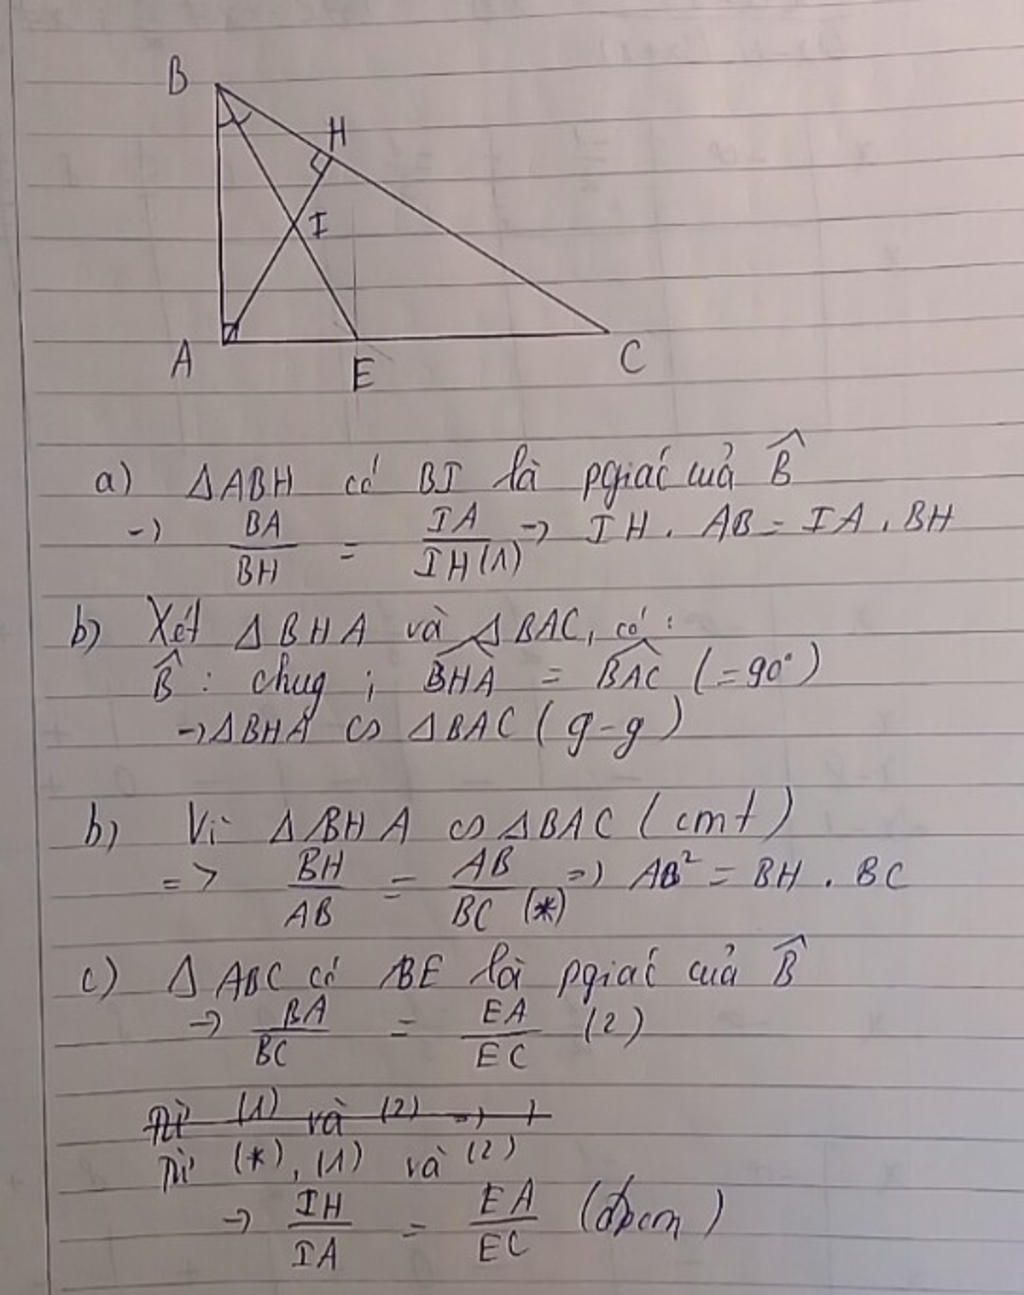 B
H
I
A
E
C
a) ΔABH có BI là pgiác của B̂
→ BA/BH = IA/IH (1) → IH . AB = IA . BH
b) Xét ΔBHA và ΔBAC, có :
B̂ : chug ; BHA^ = BAC^ (=90°)
→ ΔBHA ∽ ΔBAC (g-g)
b) Vì ΔBHA ∽ ΔBAC (cmt)
=> BH/AB = AB/BC (*) => AB² = BH . BC
c) Δ ABC có BE là pgiác của B̂
→ BA/BC = EA/EC (2)
Từ (1) và (2) →
Từ (*), (1) và (2)
→ IH/IA = EA/EC (đpcm)